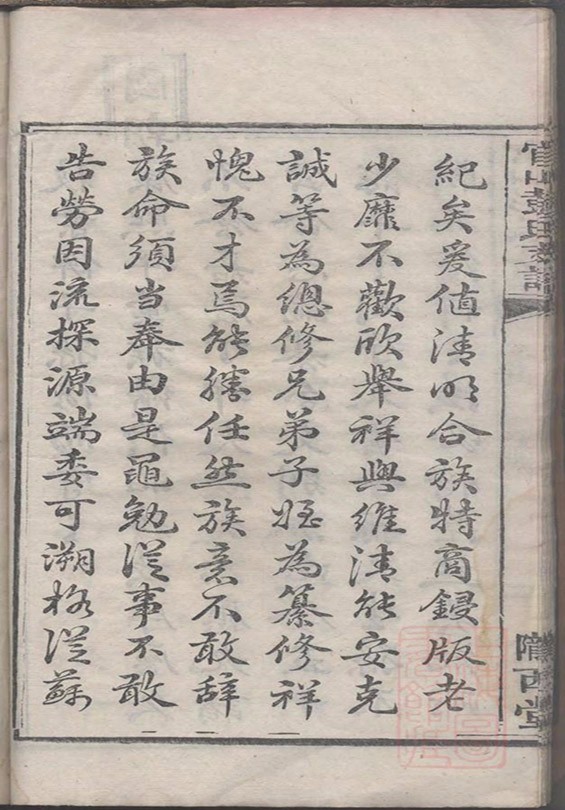 紀矣爰值清明合族特商鋟版老
少靡不歡欣舉祥與維清能安克
誠等為總修兄弟子姪為纂修祥
愧不才焉能勝任然族意不敢辞
族命須当奉由是黽勉從事不敢
告勞因流探源端委可溯格從蘇
彭氏支譜
隴西堂